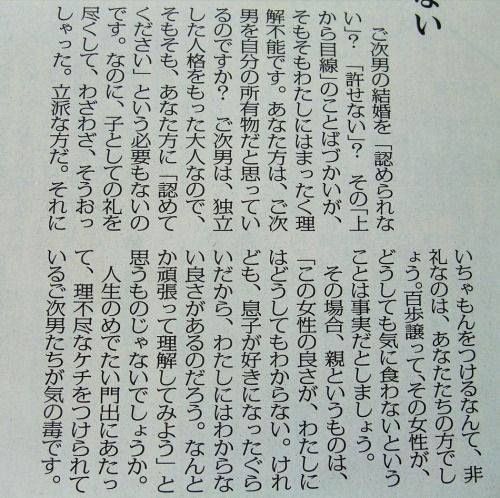 ない
ご次男の結婚を「認められな
い」? 「許せない」? その「上
から目線」のことばづかいが、
そもそもわたしにはまったく理
解不能です。あなた方は、ご次
男を自分の所有物だと思ってい
るのですか? ご次男は、独立
した人格をもった大人なので、
そもそも、あなた方に「認めて
ください」という必要もないの
です。なのに、子としての礼を
尽くして、わざわざ、そうおっ
しゃった。立派な方だ。それに
いちゃもんをつけるなんて、非
礼なのは、あなたたちの方でし
ょう。百歩譲って、その女性が、
どうしても気に食わないという
ことは事実だとしましょう。
その場合、親というものは、
「この女性の良さが、わたしに
はどうしてもわからない。けれ
ども、息子が好きになったぐら
いだから、わたしにはわからな
い良さがあるのだろう。なんと
か頑張って理解してみよう」と
思うものじゃないでしょうか。
人生のめでたい門出にあたっ
て、理不尽なケチをつけられて
いるご次男たちが気の毒です。